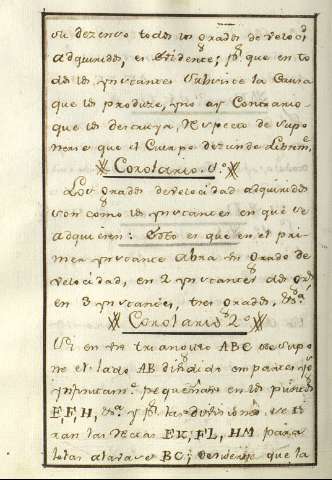 su dezenso todos los grados de veloci^d
adquiridos, es Evidente; p^r. que en to
dos los ynstantes subsiste la Causa
que los produze, y no ay Contrario
que los destruya, Respecto de supo
nerse que el Cuerpo deziende Librem^e.
Corolario. 1.^o
Los grados de velocidad adquiridos
son como los ynstantes en que se
adquieren: Esto es que en el pri
mer ynstante abra un grado de
velocidad, en 2 ynstantes dos gr^s
en 3 ynstantes, tres grados, &^a.
Corolario 2.^o
Si en un triangulo ABC se supo
ne el lado AB dividido en partes y
ynfinitam^e. pequeñas en los puntos
E, F, H, &^a y p^r. las divisiones se ti
ran las Rectas EK, FL, HM para
lelas a la base BC; que la